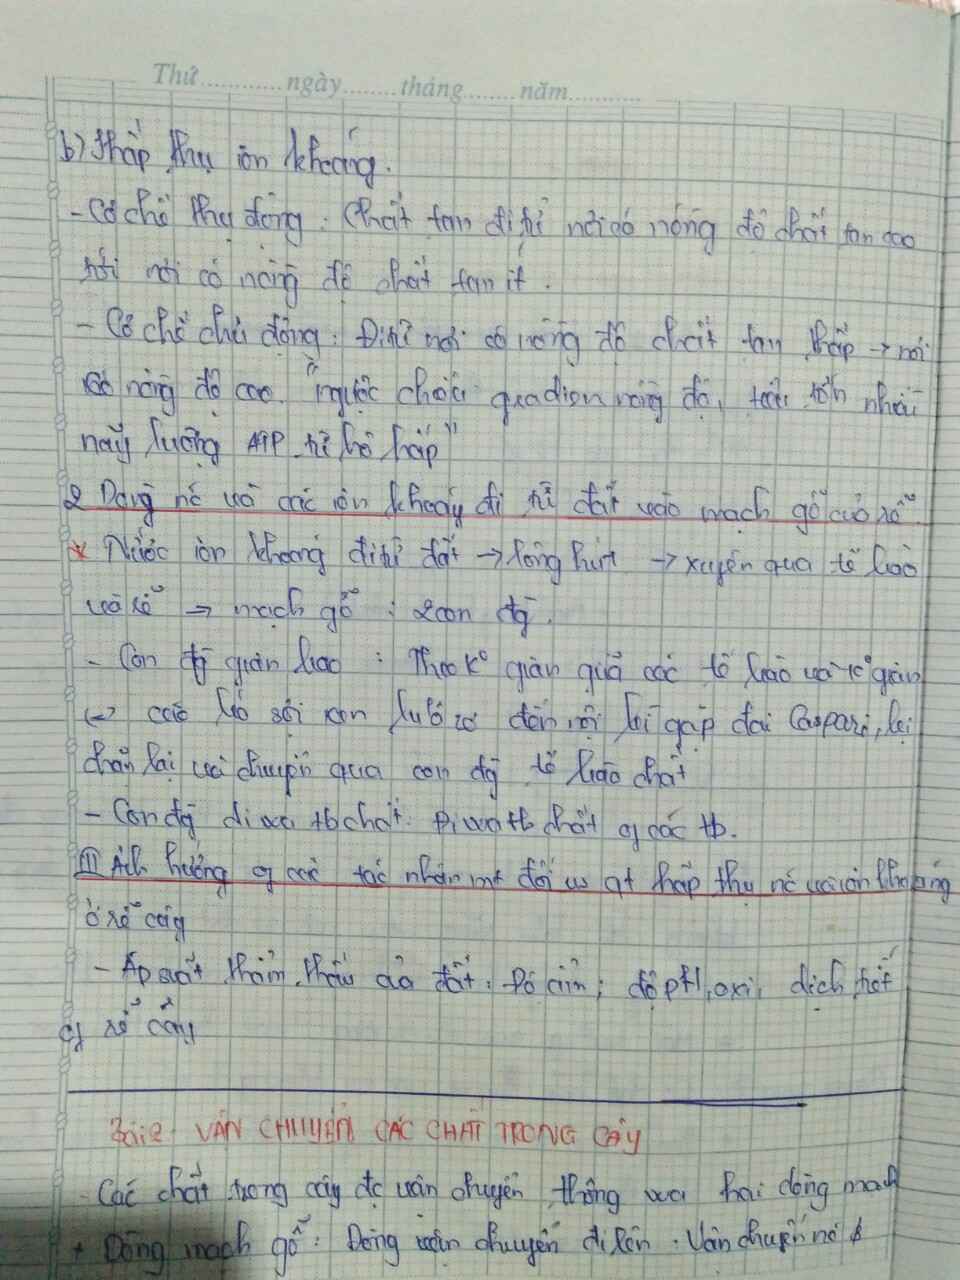 Thứ............ngày........tháng.......năm...........
b) Hấp thụ ion khoáng.
- Cơ chế thụ động. Chất tan đi từ nơi có nồng độ chất tan cao
tới nơi có nồng độ chất tan ít.
- Cơ chế chủ động: Đi từ nơi có nồng độ chất tan thấp → nơi
có nồng độ cao. "ngược chiều gradien nồng độ, tiêu tốn
năng lượng ATP từ hô hấp"
2 Dòng nc và các ion khoáng đi từ đất vào mạch gỗ của rễ
* Nước ion khoáng đi từ đất → lông hút → xuyên qua tế bào
vỏ rễ → mạch gỗ : 2 con đg.
- Con đg gian bào : Theo k° gian giữa các tế bào và k° gian
các bó sợi xen đến nội bì gặp đai Caspari, bị
chặn lại và chuyển qua con đg tế bào chất
- Con đg đi qua tb chất. Đi qua tb chất of các tb.
III Ảnh hưởng of các tác nhân mt đối vs qt hấp thụ nc và ion khoáng
ở rễ cây
- Áp suất thẩm thấu của đất, Độ ẩm; độ pH, oxi, dịch tiết
of rễ cây
Bài 2 VẬN CHUYỂN CÁC CHẤT TRONG CÂY
- Các chất trong cây đc vận chuyển thông qua hai dòng mạch
+ Dòng mạch gỗ: Dòng vận chuyển đi lên. Vận chuyển nc